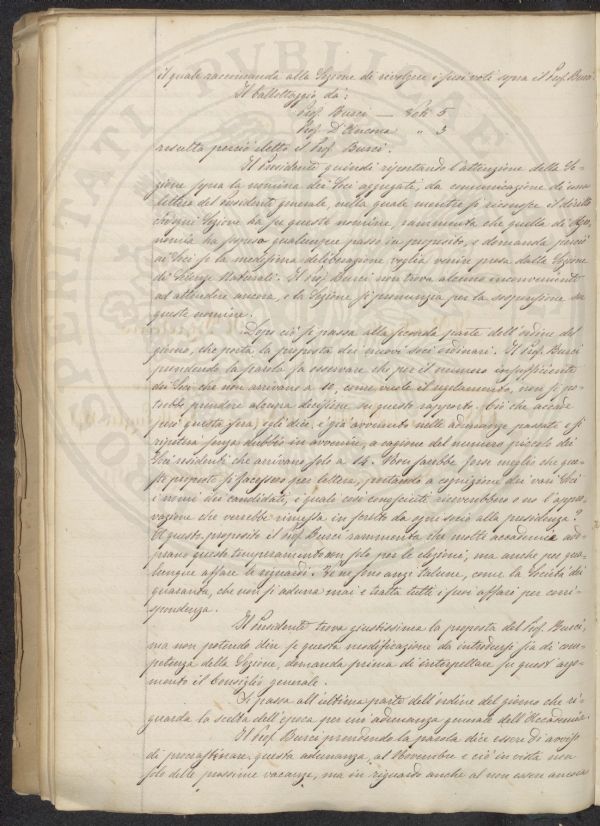 il quale raccomanda alla Sezione di rivolgere i suoi voti sopra il Prof. Busci.
Il ballottaggio dà:
Prof. Busci — Voti 5
Prof. D'Ancona " 3
risulta perciò eletto il Prof. Busci.
Il Presidente quindi riportando l'attenzione della Se-
zione sopra la nomina dei Soci aggregati, dà comunicazione di una
lettera del Presidente generale, nella quale mentre si riconosce il diritto
che ogni Sezione ha su queste nomine, rammenta che quella di Agro-
nomia ha sospeso qualunque passo in proposito, e domanda perciò
ai Soci se la medesima deliberazione voglia venire presa dalla Sezione
di Scienze Naturali. Il Prof. Busci non trova alcuno inconveniente
ad attendere ancora, e la Sezione si pronunzia per la sospensione su
queste nomine.
Dopo ciò si passa alla seconda parte dell'ordine del
giorno, che porta la proposta dei nuovi soci ordinari. Il Prof. Busci
prendendo la parola fa osservare che per il numero insufficiente
dei Soci che non arrivano a 10, come vuole il regolamento, non si po-
trebbe prendere alcuna decisione su questo rapporto. Ciò che accade
però questa sera, egli dice, è già avvenuto nelle adunanze passate e si
ripeterà senza dubbio in avvenire, a cagione del numero piccolo dei
Soci residenti che arrivano solo a 14. Non sarebbe forse meglio che que-
ste proposte si facessero per lettera, portando a cognizione dei vari Soci
i nomi dei candidati, i quali così conosciuti riceverebbero o no l'appro-
vazione che verrebbe rimessa in scritto da ogni socio alla presidenza?
A questo proposito il Prof. Busci rammenta che molte accademie ado-
prano questo temperamento non solo per le elezioni, ma anche per qua-
lunque affare le riguardi. Ve ne sono anzi talune, come la Società dei
quaranta, che non si aduna mai e tratta tutti i suoi affari per corri-
spondenza.
Il Presidente trova giustissima la proposta del Prof. Busci,
ma non potendo dire se questa modificazione da introdursi sia di com-
petenza della Sezione, domanda prima di interpellare su quest'argo-
mento il Consiglio generale.
Si passa all'ultima parte dell'ordine del giorno che ri-
guarda la scelta dell'epoca per un'adunanza generale dell'Accademia.
Il Prof. Busci prendendo la parola dice essere di avviso
di procrastinare questa adunanza, al Novembre e ciò in vista non
solo delle prossime vacanze, ma in riguardo anche al non essere ancora